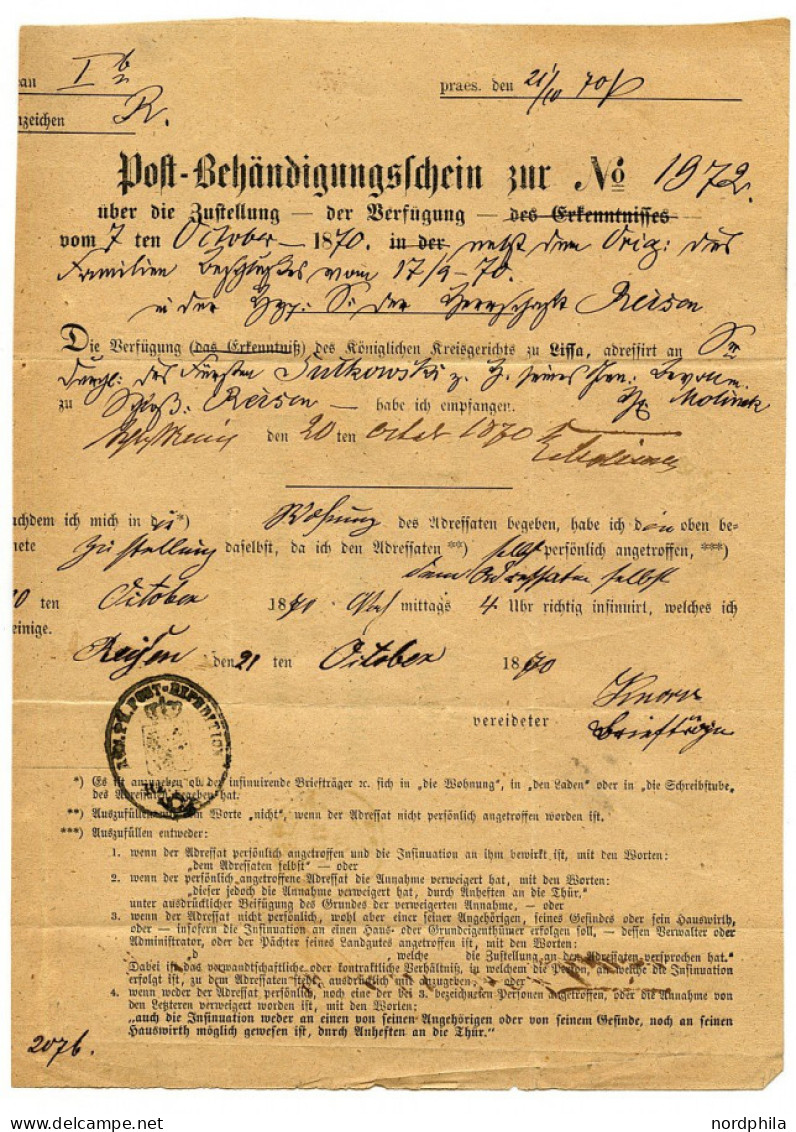 eau I b praes. den 21/10 70
nzeichen R.
Post-Behändigungsschein zur No 1972.
über die Zustellung — der Verfügung — des Erkenntnisses
vom 7 ten October 1870. in der nebst dem Orig: des
Familien Beschlußes vom 17/9-70.
in der Hyp: S: der Herrschaft Reisen
Die Verfügung (das Erkenntniß) des Königlichen Kreisgerichts zu Lissa, adressirt an Sr
Durchl: des Fürsten Sulkowski z. H. seines Gen: Bevollm.
zu Schloß: Reisen — habe ich empfangen. H. Molinek
den 20 ten Octob 1870
achdem ich mich in die *) Wohnung des Adressaten begeben, habe ich den oben be-
nete Zustellung daselbst, da ich den Adressaten **) selbst persönlich angetroffen, ***)
dem Adressaten selbst
0 ten October 1870 Nach mittags 4 Uhr richtig insinuirt, welches ich
einige.
Reisen den 21 ten October 1870
Knorr
vereideter Briefträger
KÖN. PR. POST-EXPEDITION
*) Es ist anzugeben ob der insinuirende Briefträger ꝛc. sich in „die Wohnung", in „den Laden" oder in „die Schreibstube,
des Adressaten begeben hat.
**) Auszufüllen mit dem Worte „nicht", wenn der Adressat nicht persönlich angetroffen worden ist.
***) Auszufüllen entweder:
1. wenn der Adressat persönlich angetroffen und die Insinuation an ihm bewirkt ist, mit den Worten:
„dem Adressaten selbst" — oder
2. wenn der persönlich angetroffene Adressat die Annahme verweigert hat, mit den Worten:
„dieser jedoch die Annahme verweigert hat, durch Anheften an die Thür."
unter ausdrücklicher Beifügung des Grundes der verweigerten Annahme, — oder
3. wenn der Adressat nicht persönlich, wohl aber einer seiner Angehörigen, seines Gesindes oder sein Hauswirth,
oder — insofern die Insinuation an einen Haus- oder Grundeigenthümer erfolgen soll, — dessen Verwalter oder
Administrator, oder der Pächter seines Landgutes angetroffen ist, mit den Worten:
„d , welche die Zustellung an den Adressaten versprochen hat."
Dabei ist das verwandtschaftliche oder kontraktliche Verhältniß, in welchem die Person, an welche die Insinuation
erfolgt ist, zu dem Adressaten steht, ausdrücklich mit anzugeben, — oder
4. wenn weder der Adressat persönlich, noch eine der bei 3. bezeichneten Personen angetroffen, oder die Annahme von
den Letzteren verweigert worden ist, mit den Worten:
„auch die Insinuation weder an einen von seinen Angehörigen oder von seinem Gesinde, noch an seinen
Hauswirth möglich gewesen ist, durch Anheften an die Thür."
2076.
nordphila